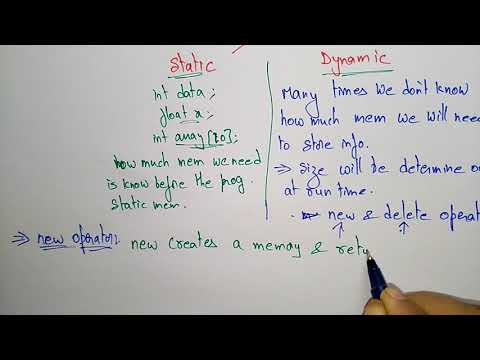 Static
int data;
float x;
int array[20];
how much mem we need
is know before the prog.
static mem.
Dynamic
Many times we don't know
how much mem we will need
to store info.
⇒ Size will be determine
at run time.
new & delete operat
⇒ new operator:
new creates a memory & retu